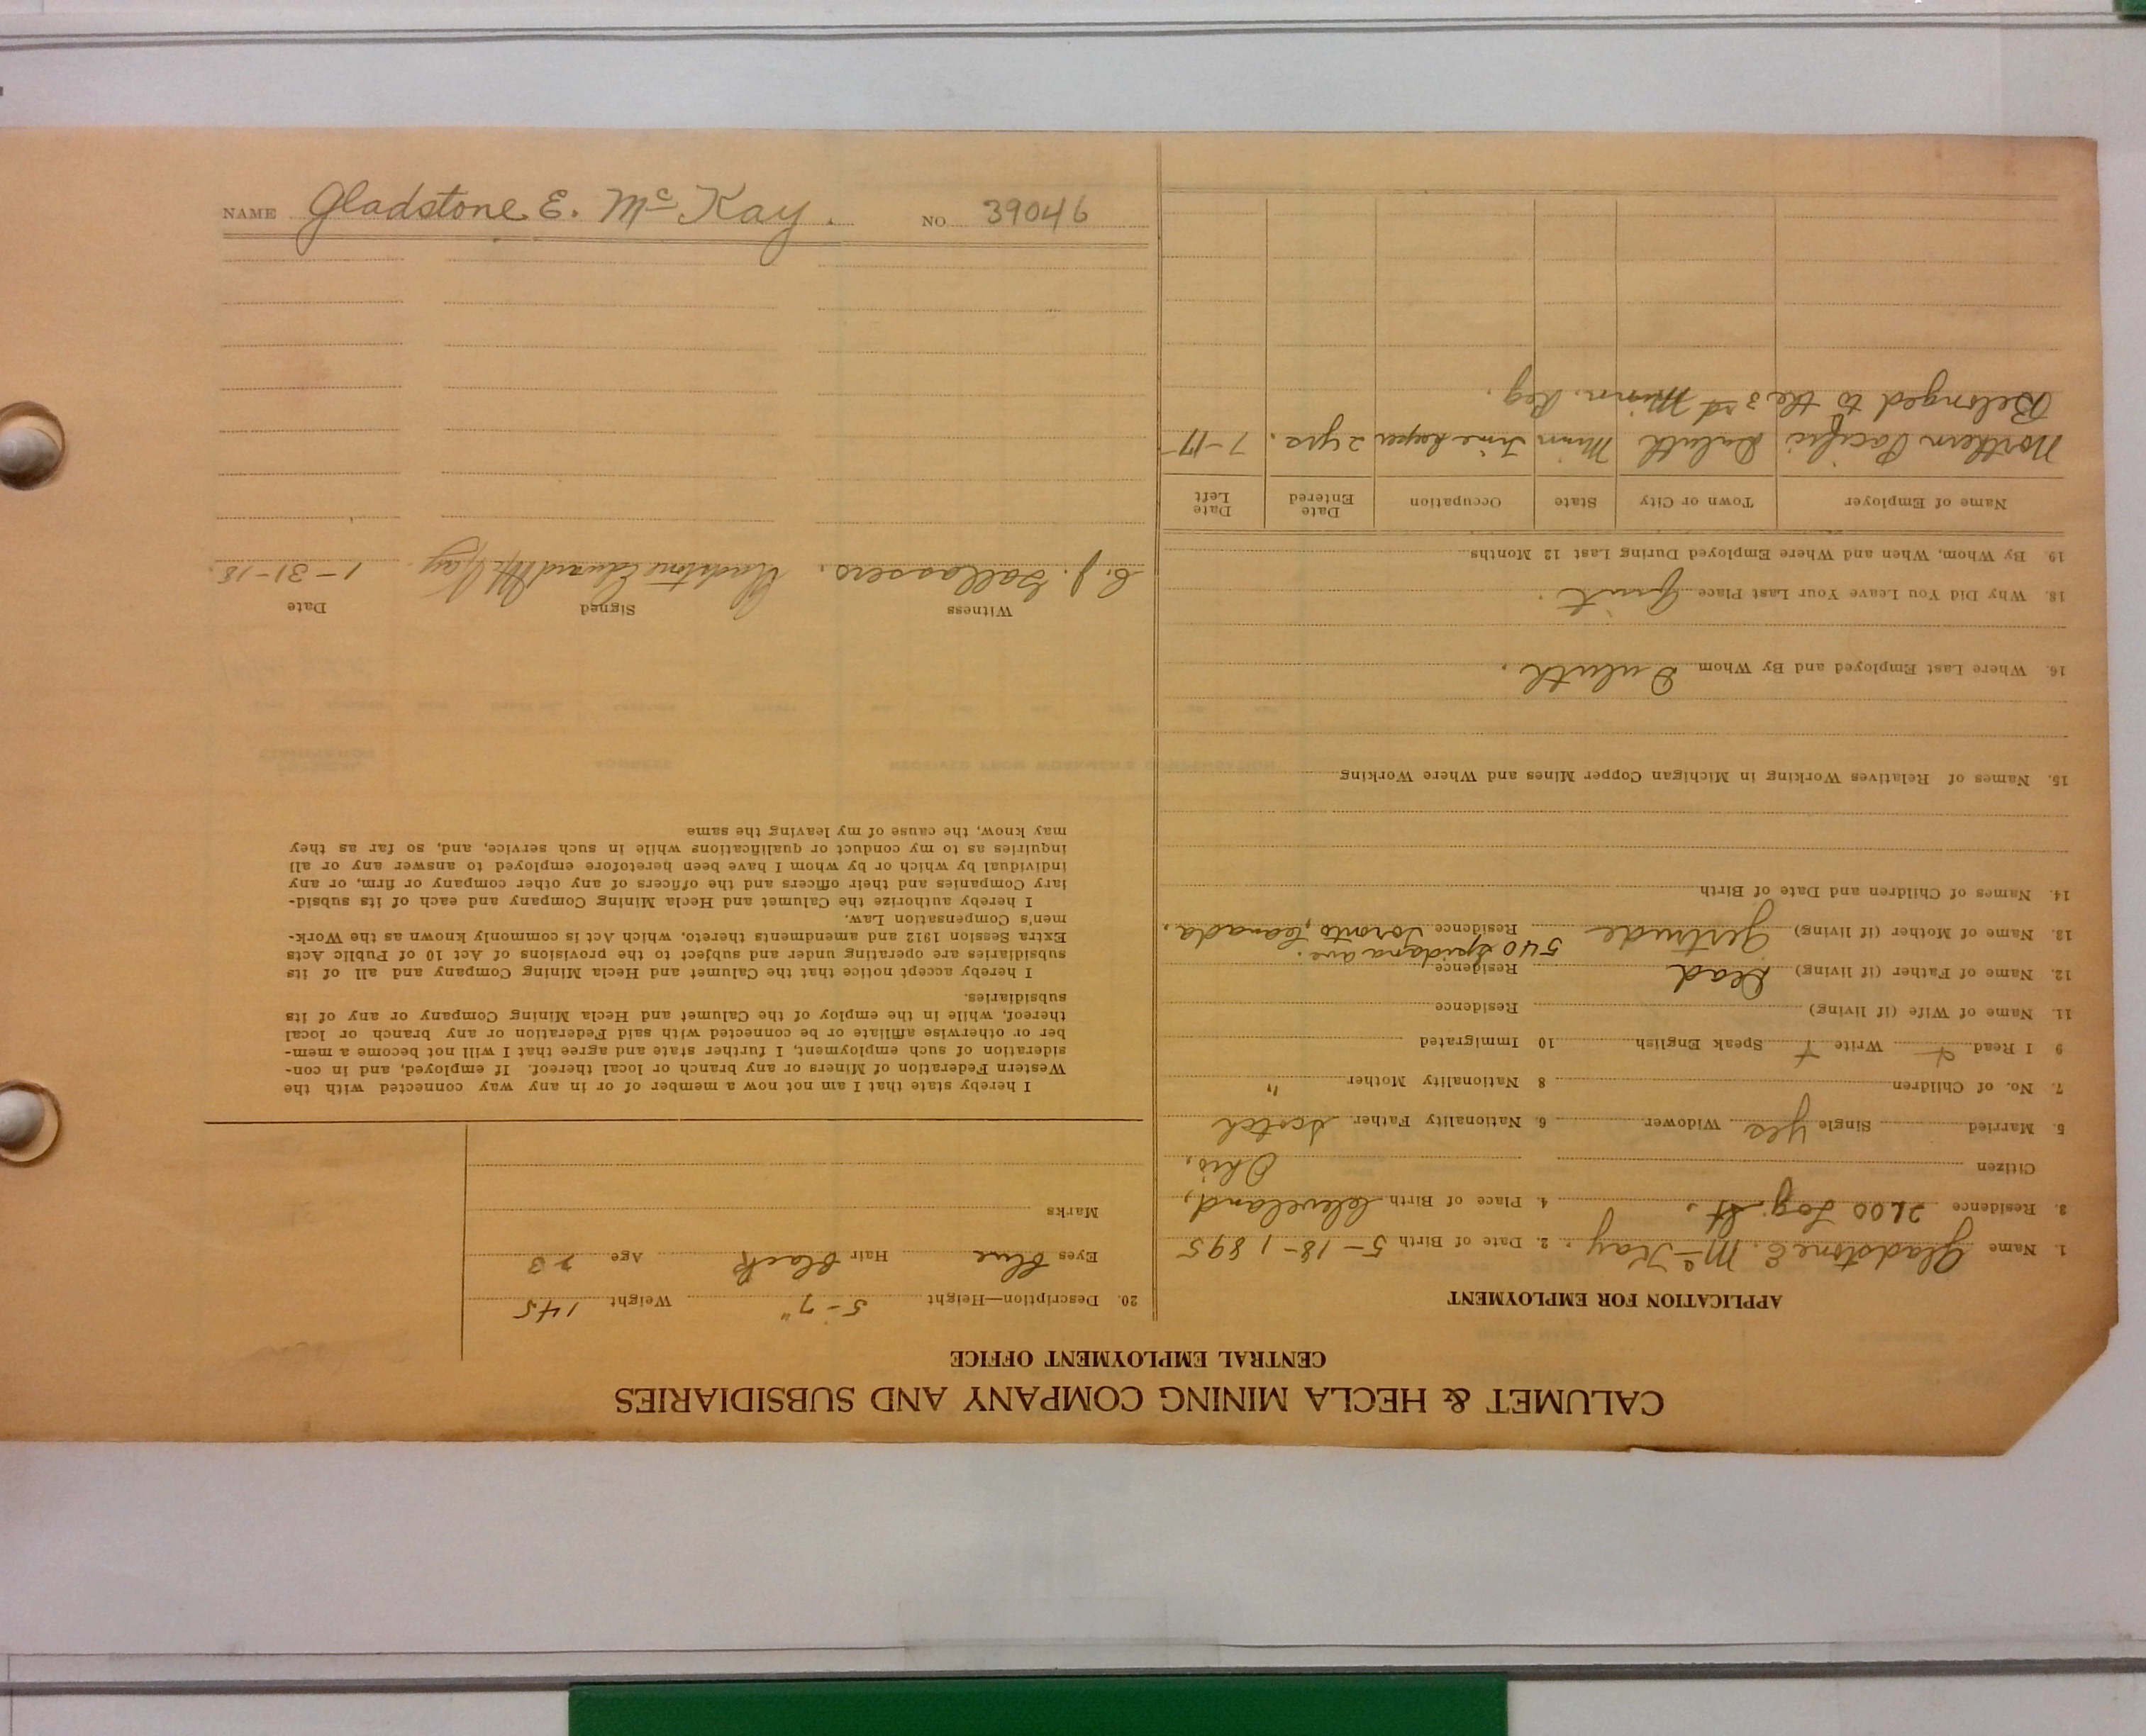 CALUMET & HECLA MINING COMPANY AND SUBSIDIARIES
CENTRAL EMPLOYMENT OFFICE
APPLICATION FOR EMPLOYMENT
1. Name Gladstone E. McKay. 2. Date of Birth 5-18-1895
3. Residence 2600 Log. St. 4. Place of Birth Cleveland,
Citizen Ohio.
5. Married Single Yes Widower 6. Nationality Father Scotch
7. No. of Children 8 Nationality Mother "
9 I Read + Write + Speak English 10 Immigrated
11. Name of Wife (if living) Residence
12. Name of Father (if living) Dead Residence
540 Spidana ave.
13. Name of Mother (if living) Gertrude Residence Toronto, Canada.
14. Names of Children and Date of Birth
15. Names of Relatives Working in Michigan Copper Mines and Where Working
16. Where Last Employed and By Whom Duluth.
18. Why Did You Leave Your Last Place Quit.
19. By Whom, When and Where Employed During Last 12 Months
Name of Employer Town or City State Occupation Date Entered Date Left
Northern Pacific Duluth Minn Time keeper 2 yrs. 7-17
Belonged to the 3rd Minn. Reg.
20. Description—Height 5-7" Weight 145
Eyes blue Hair black Age 23
Marks
I hereby state that I am not now a member of or in any way connected with the
Western Federation of Miners or any branch or local thereof. If employed, and in con-
sideration of such employment, I further state and agree that I will not become a mem-
ber or otherwise affiliate or be connected with said Federation or any branch or local
thereof, while in the employ of the Calumet and Hecla Mining Company or any of its
subsidiaries.
I hereby accept notice that the Calumet and Hecla Mining Company and all of its
subsidiaries are operating under and subject to the provisions of Act 10 of Public Acts
Extra Session 1912 and amendments thereto, which Act is commonly known as the Work-
men's Compensation Law.
I hereby authorize the Calumet and Hecla Mining Company and each of its subsid-
iary Companies and their officers and the officers of any other company or firm, or any
individual by which or by whom I have been heretofore employed to answer any or all
inquiries as to my conduct or qualifications while in such service, and, so far as they
may know, the cause of my leaving the same
Witness Signed Date
C. J. Gallassero. Gladstone Edward McKay. 1-31-18.
NAME Gladstone E. McKay. NO. 39046